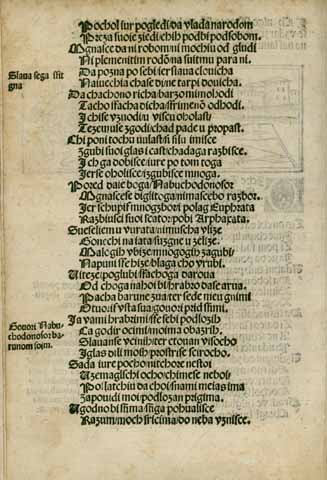 Pochol iur pogledi/da vlada narodom
Prza suoie ziedi/ehih podbi pod sobom.
Mgnase da ni robom/ni mochiu od gliudi
Ni plemenitim rodom/na suitu mu para ni.
Da pozna po sebi/ier slaua clouicha
Naiuechia chase di/ne tarpi ouicha.
Da chachono richa barzo mimohodi
Tacho slfacha dicha/s frimenom odhodi.
I chise vznodi/u visocu oholast/
Tezemuse zgodi/chad pade u propast.
Slaua sega sfitgna
Chi poni tochu u ulast/nisu imisce
Izgubi suoi glas/i cast/chadaga razbisce.
Ich ga dobisce/iure po tom toga
Ierse oholisce/izgubisce mnoga.
Pored daie boga/Nabuchodonosor
Mgnascese digli toga/nimasce ho razbor.
Ier schupif mnog zbor/i polag Euphrata
Razbi uesi suoi scator/pobi Arphaxata.
Sueselien u vurata/ni muscha vlize
Gonechi na iata/suzgne u zelize.
Malo gih vbize/mnogo gih zagubi/
Napuni sfe hize/blaga cho vrubi.
Viteze/i poglubi/sfachoga daroua
Od choga naboi bi/hrabzo da se arua.
Pacha barune zua/ter sede meu gnimi
Otuori vsta sua/gouori prid sfimi.
Gouor Nabuchodonosor barunom soim.
Ia vami hrabrimi/sfe sebi podlozih
Ca godir ocimi/moima obazrih.
Slauan se vcinih/ter eto uan visocho
I glas bili moih/prostrise scirocho.
Sada iure pocho/nitchore ne stoi
Uzemaglischi ocho/chi me se ne boi/
Posfatchiu da choi/snami meias ima
Zapouidi moi/podlozan prigima.
Ugodno bi sfima/sfiga pohualisce
Razum/moch sficima/do neba vznisce.